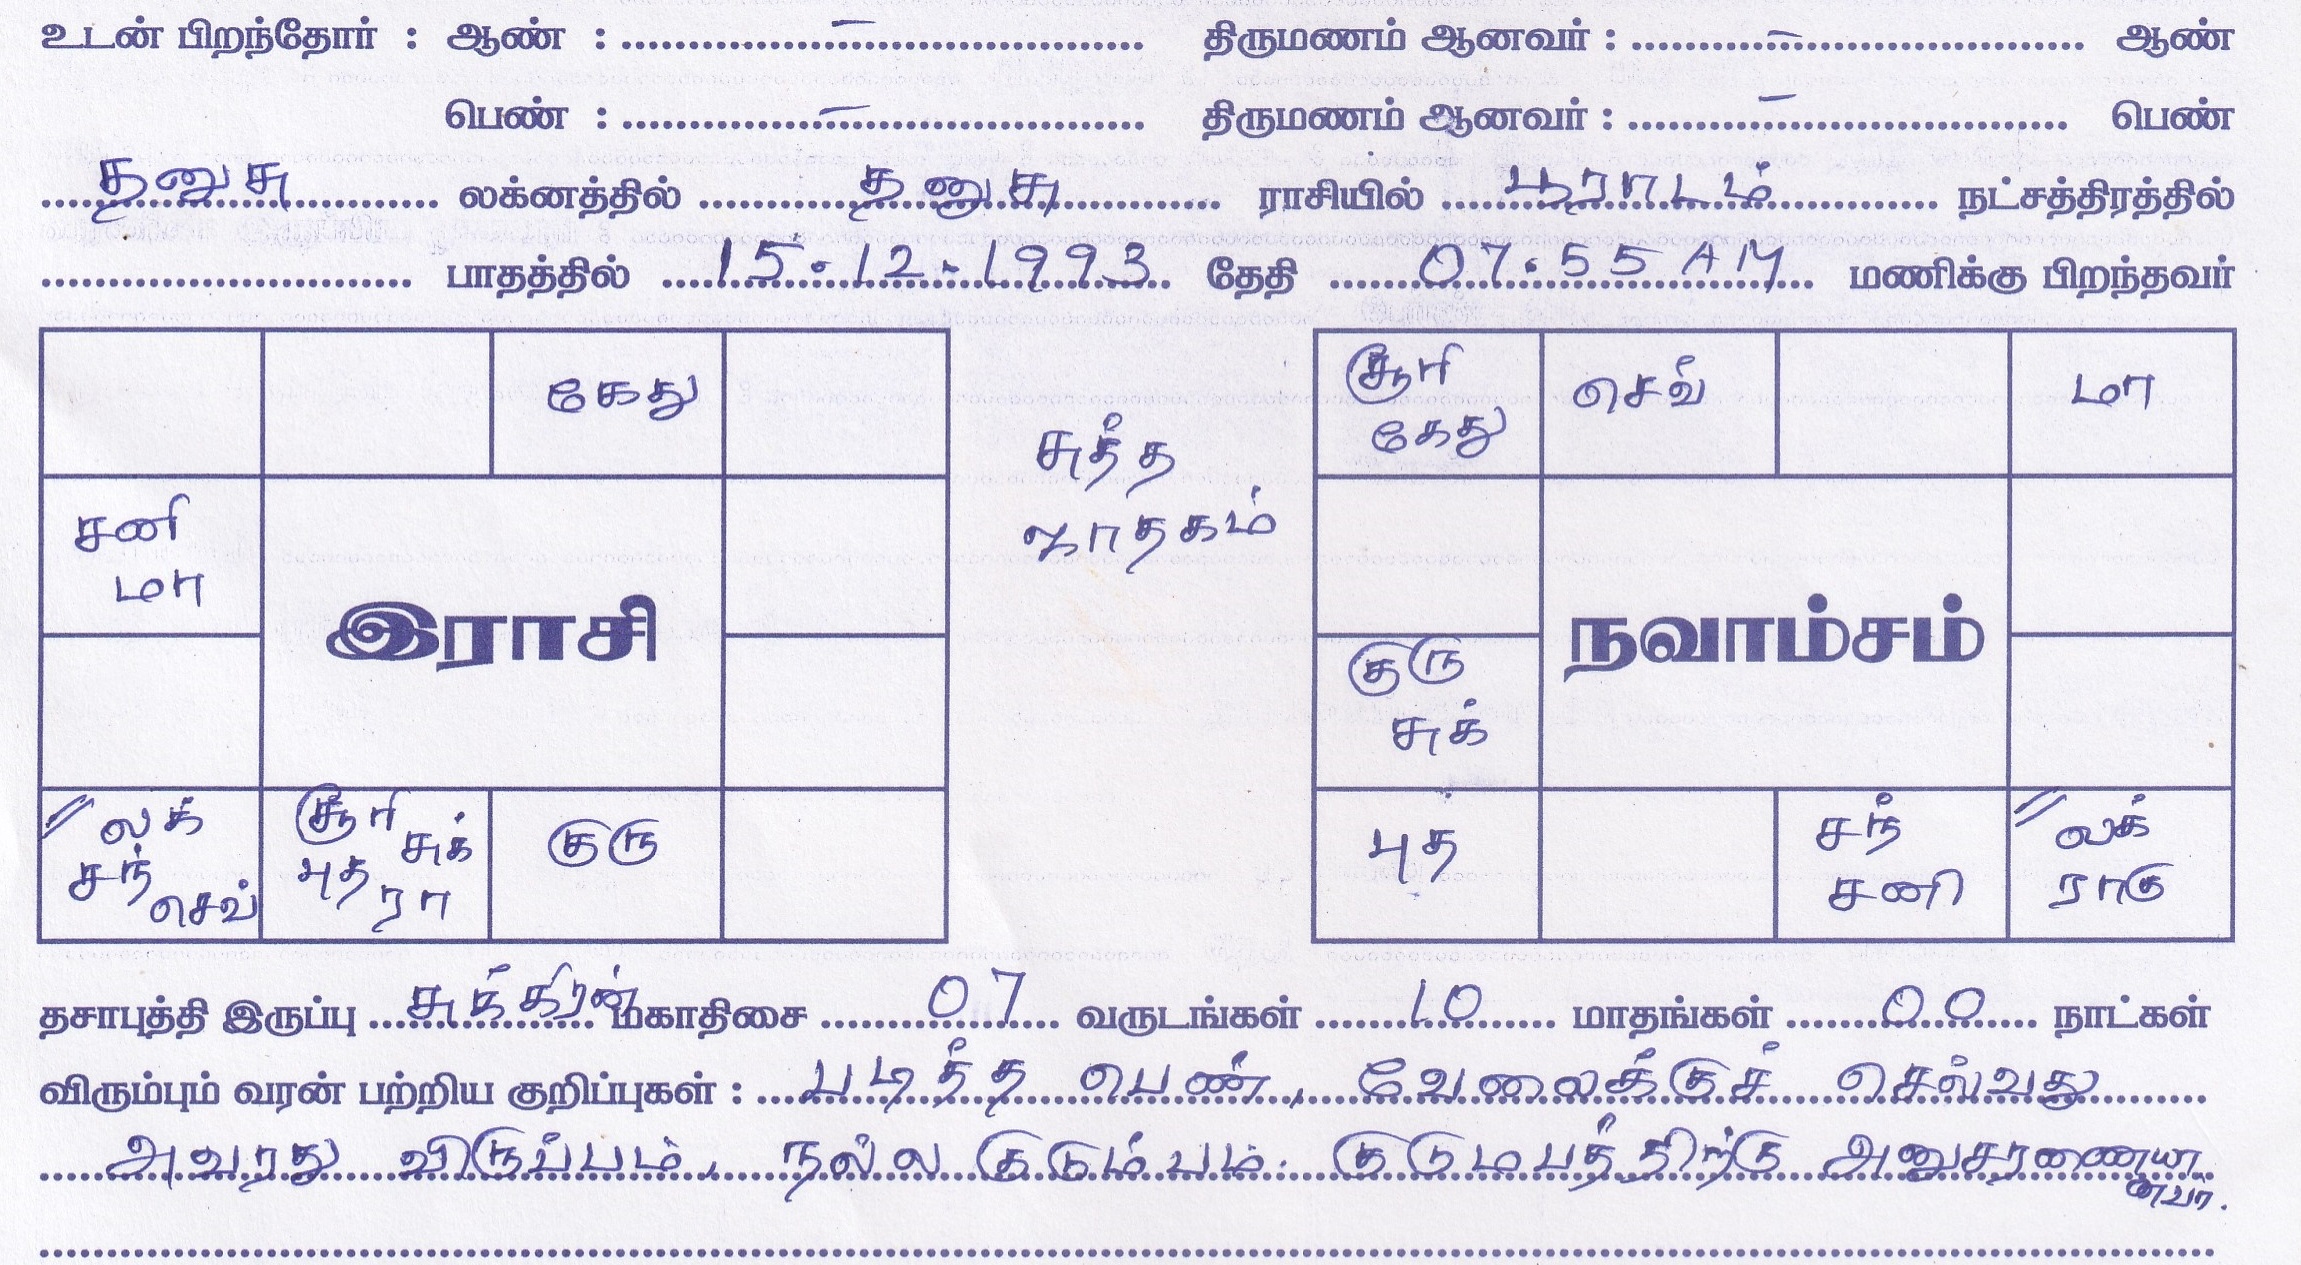 உடன் பிறந்தோர் : ஆண் : ..........–.......... திருமணம் ஆனவர் : ..........–.......... ஆண்
பெண் : ..........–.......... திருமணம் ஆனவர் : ..........–.......... பெண்
தனுசு லக்னத்தில் தனுசு ராசியில் பூராடம் நட்சத்திரத்தில்
.......... பாதத்தில் 15.12.1993 தேதி 07.55 AM மணிக்கு பிறந்தவர்
கேது
சனி
மா
இராசி
// லக்
சந்
செவ்
சூரி
சுக்
புத
ரா
குரு
சுத்த
ஜாதகம்
சூரி
கேது
செவ்
மா
குரு
சுக்
நவாம்சம்
புத
சந்
சனி
// லக்
ராகு
தசாபுத்தி இருப்பு சுக்கிரன் மகாதிசை 07 வருடங்கள் 10 மாதங்கள் 00 நாட்கள்
விரும்பும் வரன் பற்றிய குறிப்புகள் : படித்த பெண், வேலைக்குச் செல்வது
அவரது விருப்பம், நல்ல குடும்பம். குடும்பத்திற்கு அனுசரணையா
னவர்.